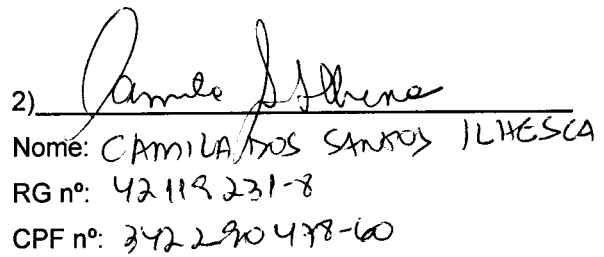 2) Camila S Ilhesca
Nome: CAMILA DOS SANTOS ILHESCA
RG nº: 42119231-8
CPF nº: 342290478-60